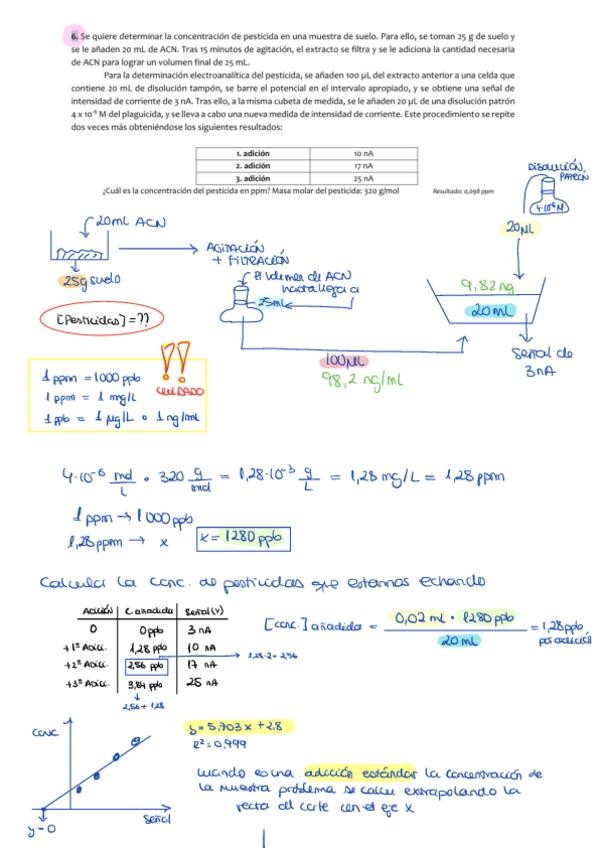 6. Se quiere determinar la concentración de pesticida en una muestra de suelo. Para ello, se toman 25 g de suelo y
se le añaden 20 mL de ACN. Tras 15 minutos de agitación, el extracto se filtra y se le adiciona la cantidad necesaria
de ACN para lograr un volumen final de 25 mL.
Para la determinación electroanalítica del pesticida, se añaden 100 µL del extracto anterior a una celda que
contiene 20 mL de disolución tampón, se barre el potencial en el intervalo apropiado, y se obtiene una señal de
intensidad de corriente de 3 nA. Tras ello, a la misma cubeta de medida, se le añaden 20 µL de una disolución patrón
4 x 10⁻⁶ M del plaguicida, y se lleva a cabo una nueva medida de intensidad de corriente. Este procedimiento se repite
dos veces más obteniéndose los siguientes resultados:
1. adición 10 nA
2. adición 17 nA
3. adición 25 nA
¿Cuál es la concentración del pesticida en ppm? Masa molar del pesticida: 320 g/mol Resultado: 0,098 ppm
DISOLUCIÓN
PATRÓN
4·10⁻⁶M
20mL ACN
20µL
AGITACIÓN
+ FILTRACIÓN
25g suelo
El volumen de ACN
hasta llegar a
25mL
9,82 ng
20mL
[Pesticidas] = ??
100µL
98,2 ng/mL
Señal de
3nA
!!
CUIDADO
1 ppm = 1000 ppb
1 ppm = 1 mg/L
1 ppb = 1 µg/L o 1 ng/mL
4·10⁻⁶ mol/L · 320 g/mol = 1,28·10⁻³ g/L = 1,28 mg/L = 1,28 ppm
1 ppm → 1000 ppb
1,28 ppm → x x = 1280 ppb
Calcular la conc. de pesticidas que estamos echando
Adición C añadida Señal (Y)
0 0 ppb 3 nA
+1ª Adic. 1,28 ppb 10 nA
+2ª Adic. 2,56 ppb 17 nA → 1,28·2 = 2,56
+3ª Adic. 3,84 ppb 25 nA
2,56 + 1,28
[conc.] añadida = 0,02 mL · 1280 ppb / 20 mL = 1,28 ppb
por adición
CONC
Señal
y=0
y = 5,703x + 2,8
R² = 0,999
Cuando es una adición estándar la concentración de
la muestra problema se calcu extrapolando la
recta al corte con el eje x